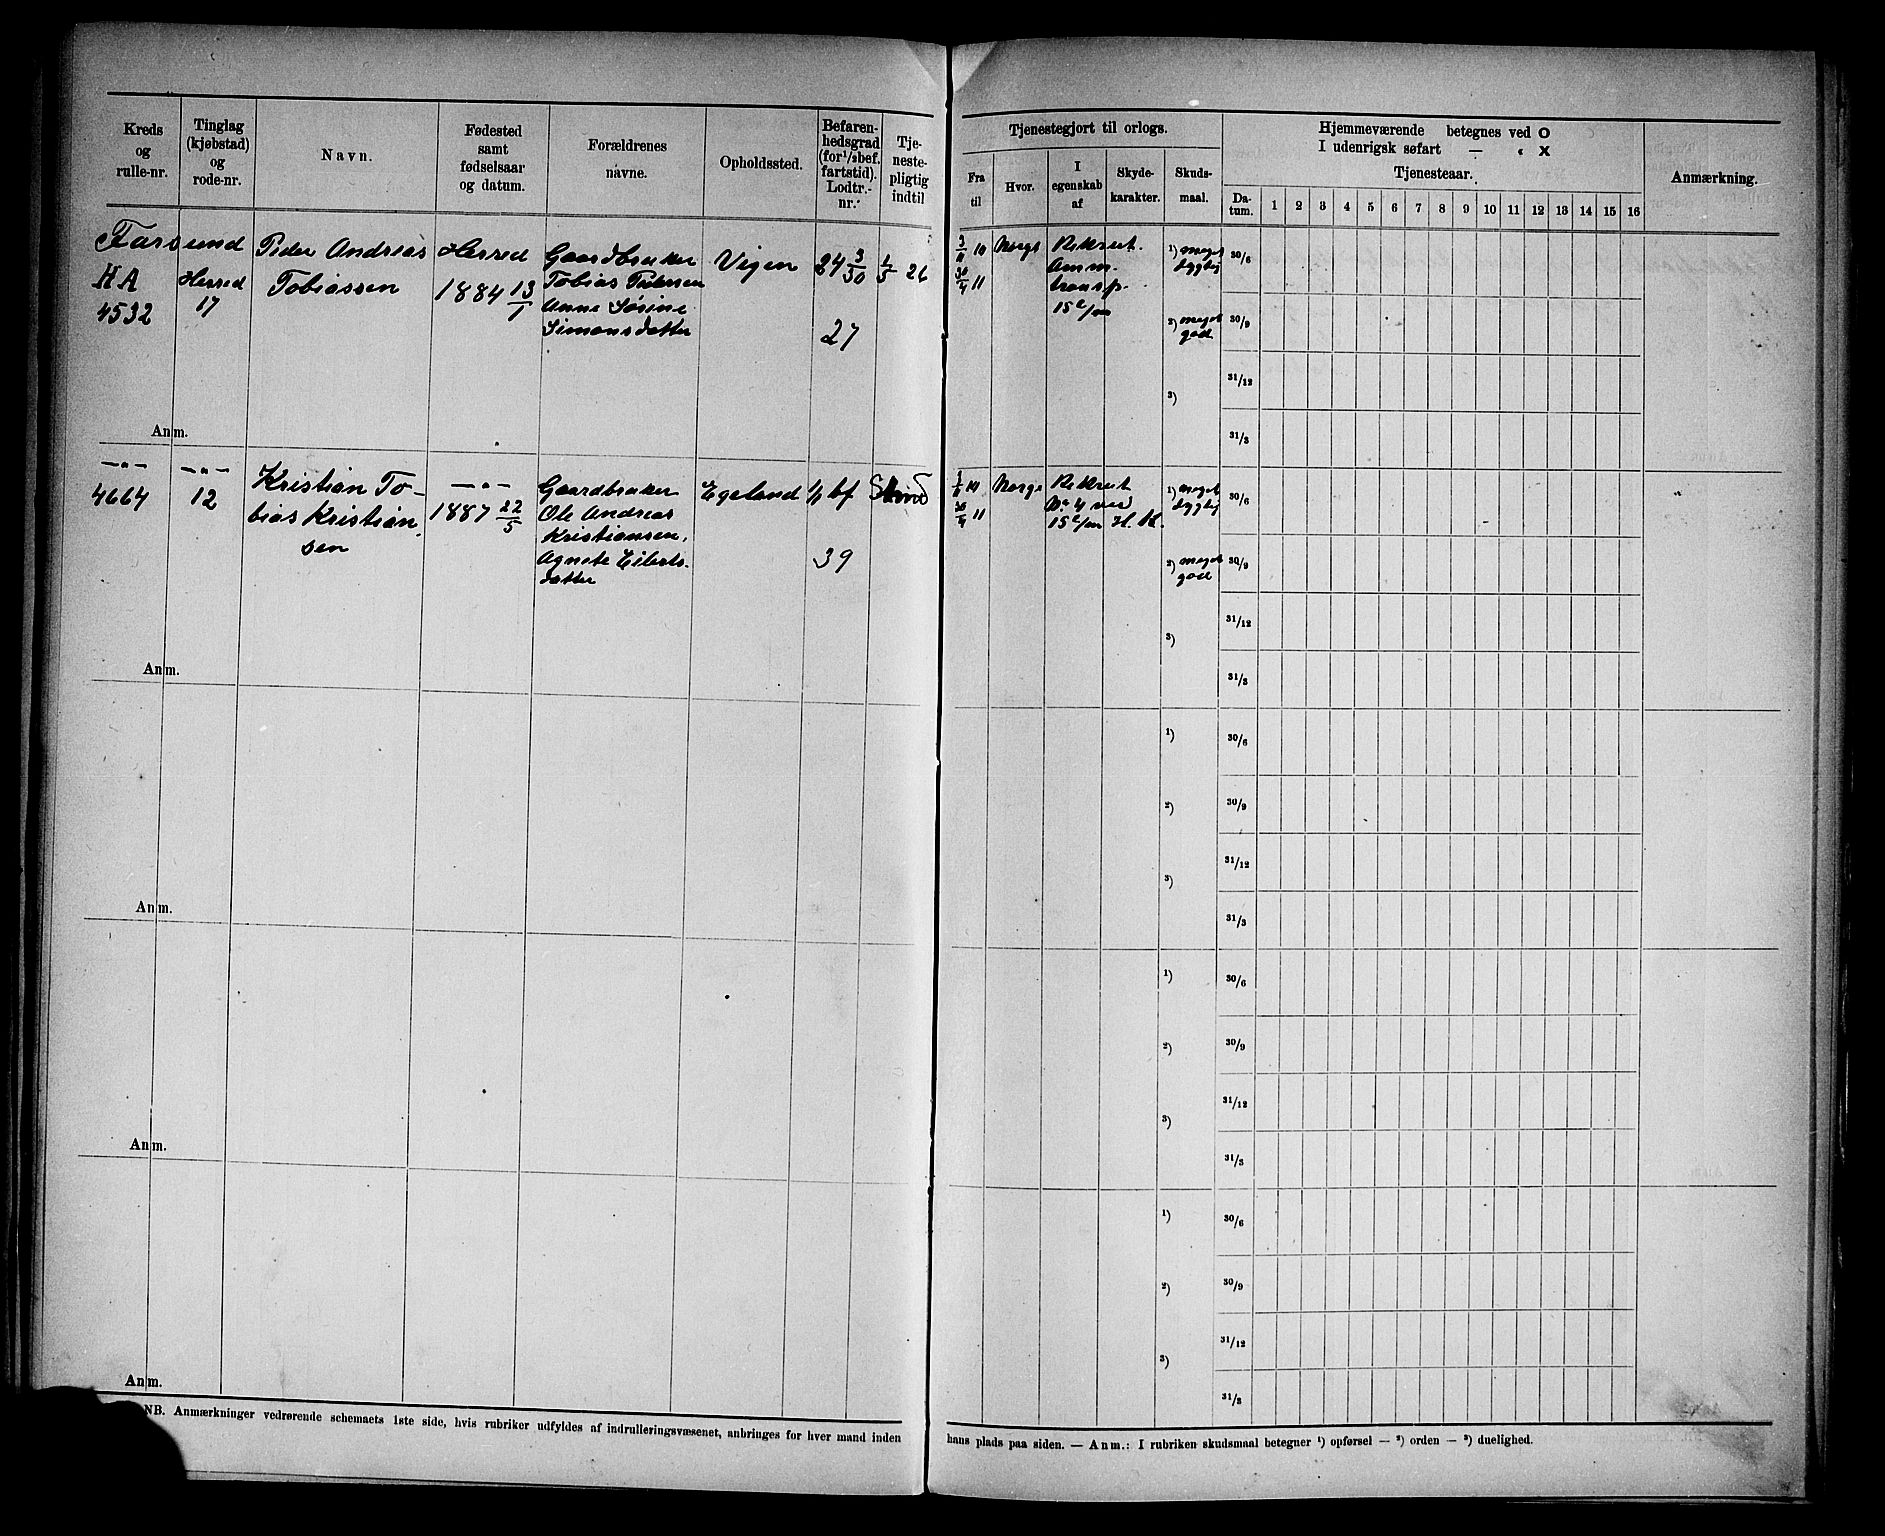 Kreds
og
rulle-nr.
Tinglag
(kjøbstad)
og
rode-nr.
Navn.
Fødested
samt
fødselsaar
og datum.
Forældrenes
navne.
Opholdssted.
Befaren-
hedsgrad
(for 1/2 bef.
fartstid).
Lodtr.-
nr.
Tje-
neste-
pligtig
indtil
Tjenestegjort til orlogs.
Fra
til
Hvor.
I
egenskab
af
Skyde-
karakter.
Skuds-
maal.
Hjemmeværende betegnes ved O
I udenrigsk søfart — „ X
Tjenesteaar.
Da-
tum.
1 2 3 4 5 6 7 8 9 10 11 12 13 14 15 16
Anmærkning.
Farsund
HA
4532
Herred
17
Peder Andreas
Tobiassen
Herred
1884 13/1
Gaardbruker
Tobias Pedersen
Anne Sosine
Simonsdatter
Vigen
24 3/30
27
1/5 26
30/4 11
Norge
Rekrut.
Amm.
transp.
15 c/m
1) meget
dygtig
2) meget
god
3)
30/6
30/9
31/12
31/3
Anm.
—„—
4664
—„—
12
Kristian To-
bias Kristian-
sen
—„—
1887 22/5
Gaardbruker
Ole Andreas
Kristiansen,
Agnete Eilerts-
datter
Egeland
1/1 bf
39
30/4 11
Norge
Rekrut
No 4 ved
15 c/m H. K.
1) meget
dygtig
2) meget
god
3)
30/6
30/9
31/12
31/3
Anm.
1)
2)
3)
30/6
30/9
31/12
31/3
Anm.
1)
2)
3)
30/6
30/9
31/12
31/3
Anm.
1)
2)
3)
30/6
30/9
31/12
31/3
Anm.
NB. Anmærkninger vedrørende schemaets 1ste side, hvis rubriker udfyldes af indrulleringsvæsenet, anbringes for hver mand inden
hans plads paa siden. — Anm.: I rubriken skudsmaal betegner 1) opførsel — 2) orden — 3) duelighed.